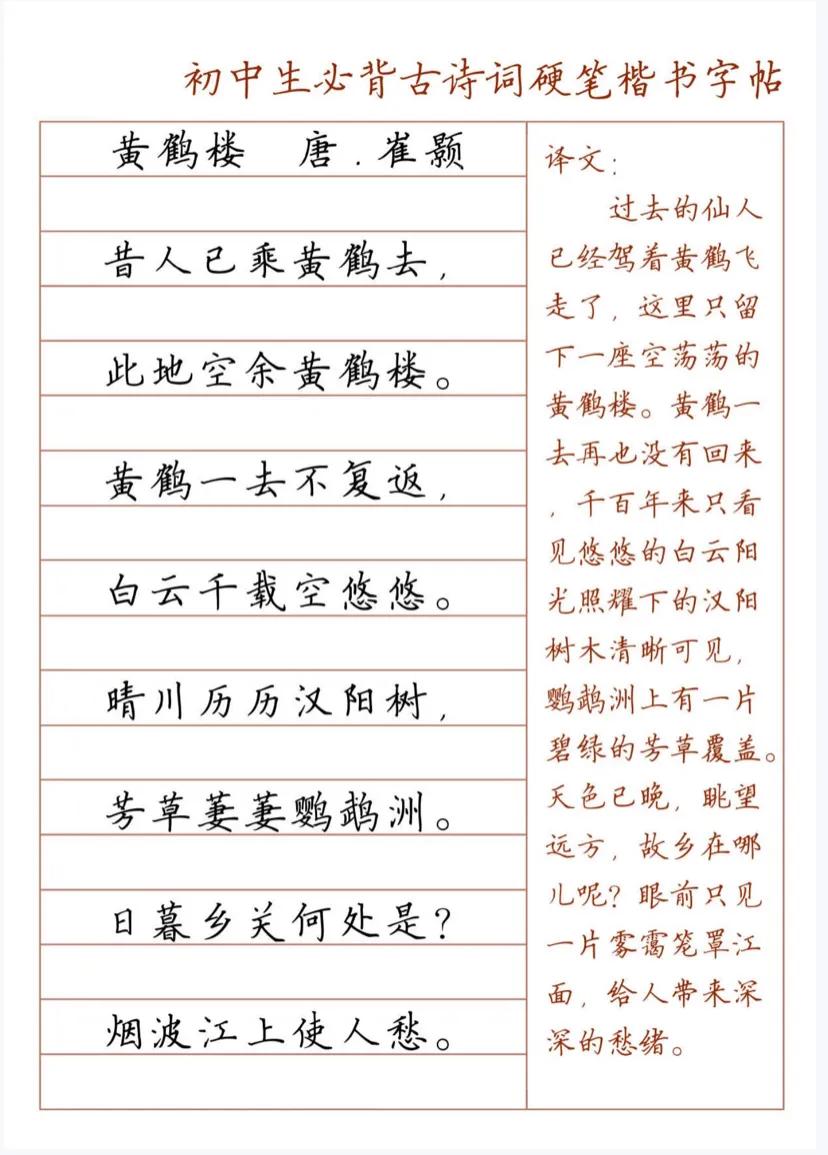 初中生必背古诗词硬笔楷书字帖
黄鹤楼 唐.崔颢
昔人已乘黄鹤去,
此地空余黄鹤楼。
黄鹤一去不复返,
白云千载空悠悠。
晴川历历汉阳树,
芳草萋萋鹦鹉洲。
日暮乡关何处是?
烟波江上使人愁。
译文:
过去的仙人
已经驾着黄鹤飞
走了,这里只留
下一座空荡荡的
黄鹤楼。黄鹤一
去再也没有回来
,千百年来只看
见悠悠的白云阳
光照耀下的汉阳
树木清晰可见,
鹦鹉洲上有一片
碧绿的芳草覆盖。
天色已晚,眺望
远方,故乡在哪
儿呢?眼前只见
一片雾霭笼罩江
面,给人带来深
深的愁绪。